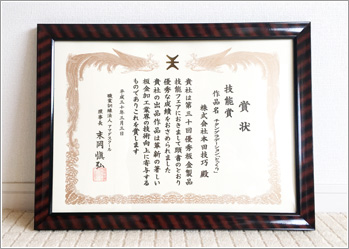 賞状
技能賞
株式会社本田技巧 殿
貴社は第三十回優秀板金製品
技能フェアにおきまして頭書のとおり
優秀な成績をおさめられました
貴社の出品作品は革新の著しい
板金加工業界の技術向上に寄与する
ものでありこれを賞します
平成三十年三月三日
職業訓練法人アマダスクール
理事長 末岡愼弘